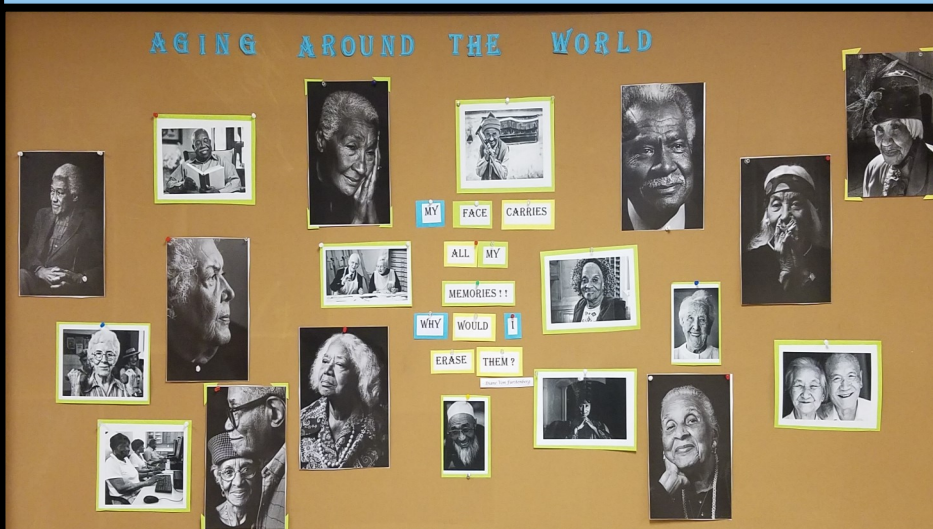 AGING AROUND THE WORLD
MY FACE CARRIES
ALL MY
MEMORIES!!
WHY WOULD I
ERASE THEM?